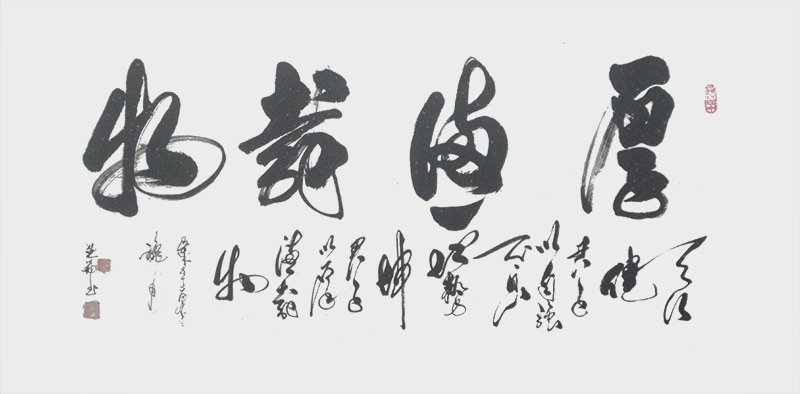 厚德載物
天行
健
君子
以自強
不息
地勢
坤
君子
以厚
德載
物